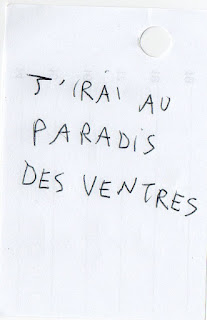 J'IRAI AU
PARADIS
DES VENTRES